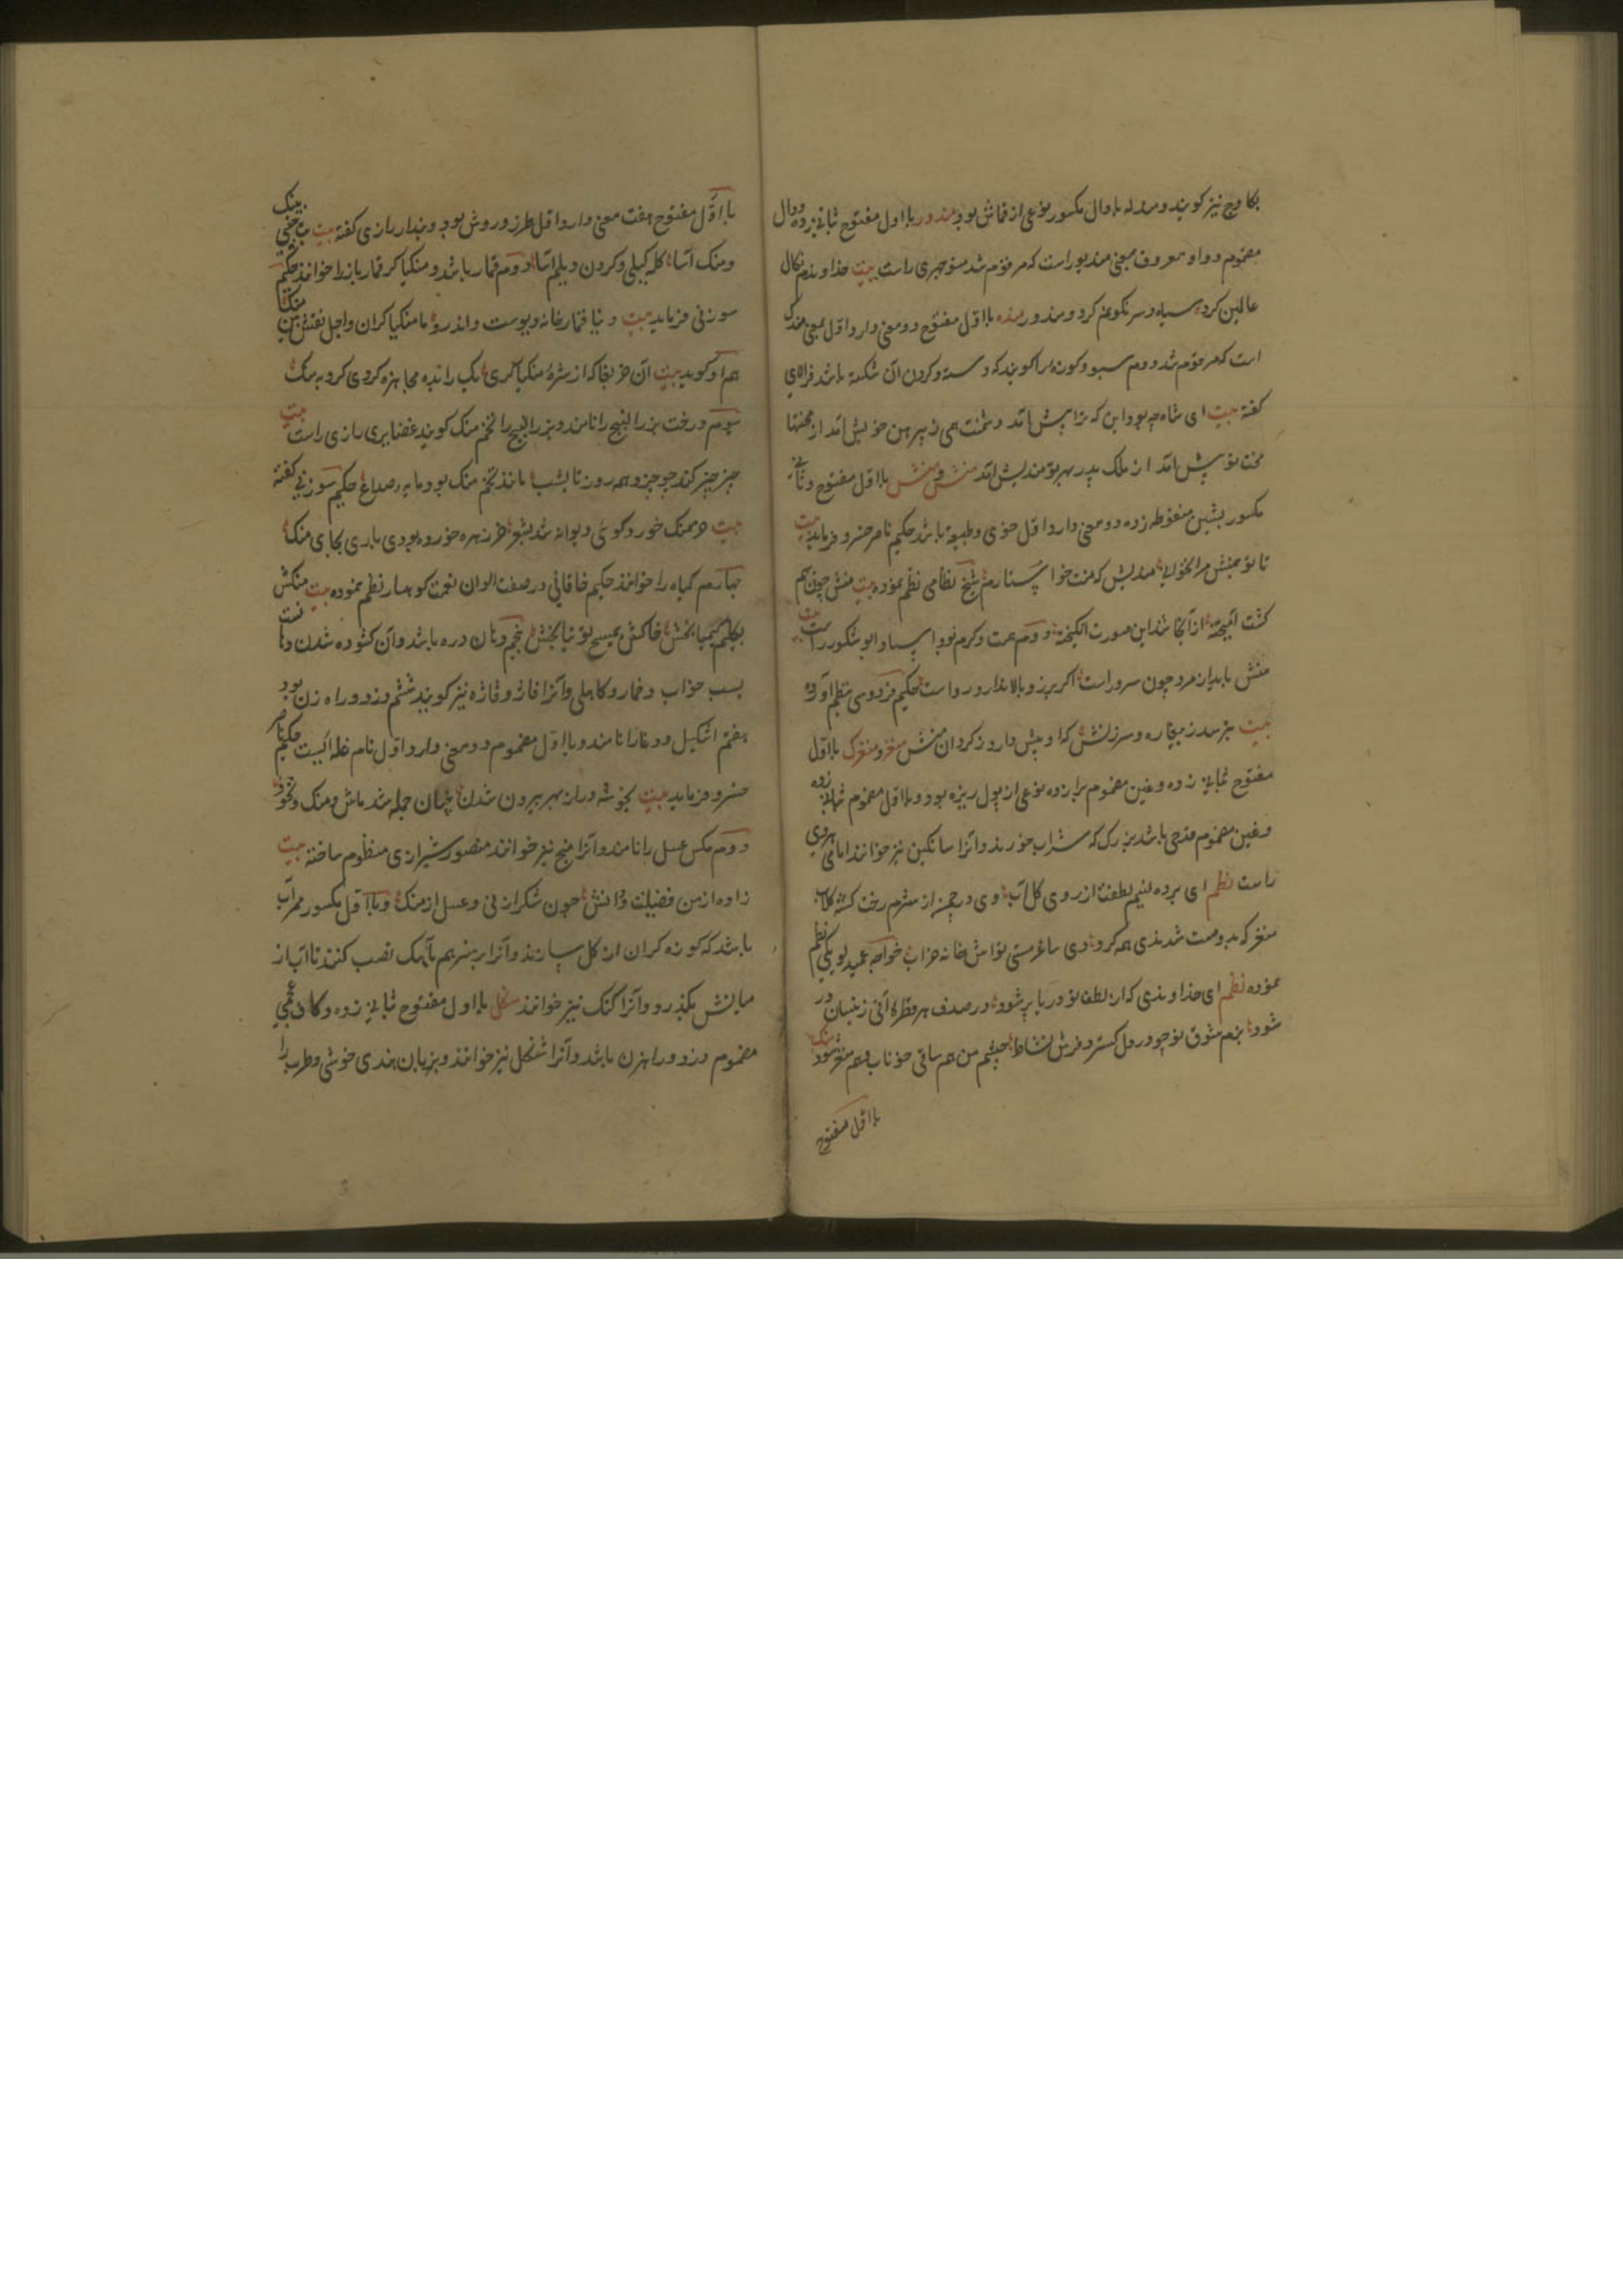 بکاوج نیز کویند و مندله با دال مکسور نوعی از قماش بود مندور با اول مفتوح بثانی زده و دال
مضموم و واو معروف بمعنی مندبور است که مرقوم شد منوچهری راست بیت خداوندم نکال
عالمین کرد سیاه و سرنکونم کرد و مندور منده با اول مفتوح دو معنی دارد اول بمعنی مندک
است که مرقوم شد دوم سبو و کوزه را کویند که دسته و کردن آن شکسته باشد فرالاوی
کفته بیت ای شاه چه بود این که ترا پیش آمد دشمنت هم از پیرهن خویش آمد از محنتها
محنت تو پیش آمد از ملک پدر بهر تو مندیش آمد منش و منش با اول مفتوح و ثانی
مکسور بشین منقوطه زده دو معنی دارد اول خوی و طبیعت باشد حکیم ناصر خسرو فرماید بیت
شیخ نظامی نظم نموده بیت منش چون بهم
کشت آمیخته از آنجا شد این صورت انکیخته دوم همت و کرم بود استاد ابو شکور راست بیت
منش باید از مرد چون سرو راست اکر برز و بالا ندارد رواست حکیم فردوسی بنظم آورده
بیت بترسد ز بیغاره و سرزنش که او پیش دارد ز کردان منش منغر و منغرک با اول
مفتوح بثانی زده و غین مضموم برا زده نوعی از پول ریزه بود و با اول مضموم بثانی زده
و غین مضموم قدحی باشد بزرک که شراب خورند و آنرا ساتکین نیز خوانند امامی هروی
راست نظم ای برده نسیم لطفت از روی کل آب وی در چمن از شرم رخت کشته کلاب
منغر که بدو مست شدندی همه کرد وی ساغر مستی تو اش خانه خراب خواجه عمید لویکی نظم
نموده نظم ای خداوندی که از لطف تو دریا پر شود در صدف هر قطره آبی ز نیسان در
شود بزم شوق تو چو در دل کسترد فرش نشاط چشم من هم ساقی خوناب و هم منغر شود منک
با اول مفتوح
با اول مفتوح هفت معنی دارد اول طرز و روش بود و بندار رازی کفته بیت
و منک آسا کله کیلی و کردن دیلم آسا دوم قمار باشد و منکیاکر قمارباز را خوانند حکیم
سوزنی فرماید بیت دنیا قمارخانه دیوست و اندرو ما منکیاکران و اجل نقش بین منکیا
هم او کوید بیت آن خر بغا که از شره منکیاکری
سوم درخت بزرالبنج را نامند و بزرالبنج را تخم منک کویند غضایری رازی راست بیت
چیز چیز کند جو جو همه روز تا بشب مانند تخم منک بود مایه صداع حکیم سوزنی کفته
بیت خر منک خورد کوئی دیوانه شد بشعر خر زهره خورده بودی باری بجای منک
چهارم کیاه را خوانند حکیم خاقانی در صفت الوان نعمت کوهسار نظم نموده بیت منکش
بکلیم کیمیا بخش خاکش بمسیح توتیا بخش پنجم دهان دره باشد و آن کشوده شدن دهانست
بسبب خواب و خمار و کاهلی و آنرا فاژ و فاژه نیز کویند ششم دزد و راه زن بود
هفتم اشکیل و دغا را نامند و با اول مضموم دو معنی دارد اول نام غله ایست حکیم ناصر
خسرو فرماید بیت بخوشه در از بهر بیرون شدن چنان جمله شد ماش و منک و نخود
دوم مکس عسل را نامند و آنرا منج نیز خوانند منصور شیرازی منظوم ساخته بیت
زاده از من فضیلت و دانش چون شکر از نی و عسل از منک و با اول مکسور ممر آب
باشد که کوزه کران از کل سازند و آنرا بر سر هم بآهک نصب کنند تا آب از
میانش بکذرد و آنرا کنک نیز خوانند منکل با اول مفتوح بثانی زده و کاف عجمی
مضموم دزد و راهزن باشد و آنرا شنکل نیز خوانند و بزبان هندی خوشی و طرب را